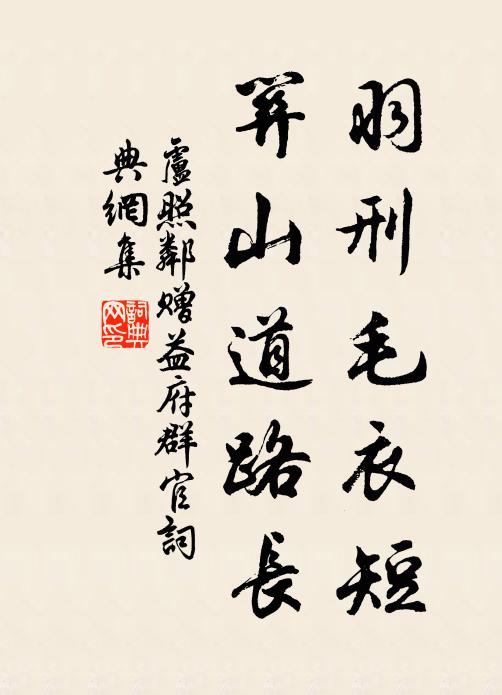 羽刑毛衣短
關山道路長
盧照鄰贈益府群官詞
典網集
詞典網印